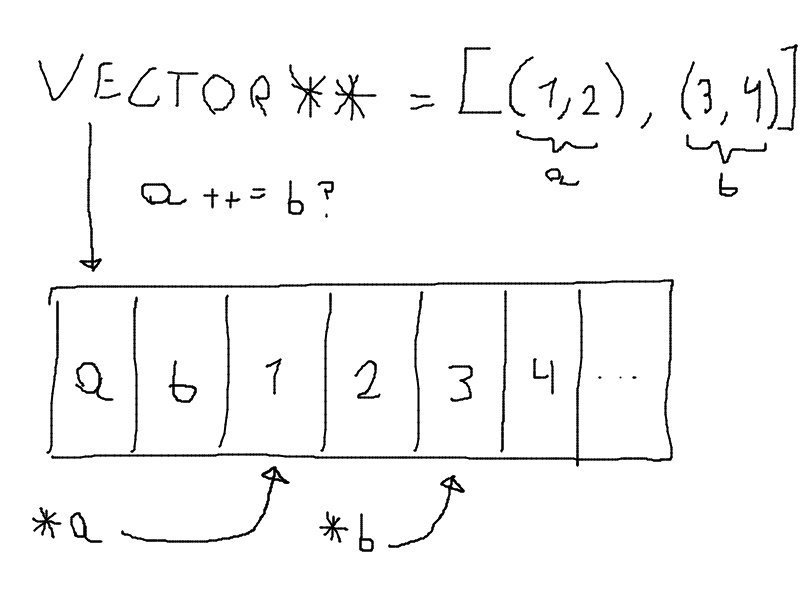 VECTOR** = [(1,2), (3,4)]
a b
a ++= b?
a b 1 2 3 4 ...
*a *b